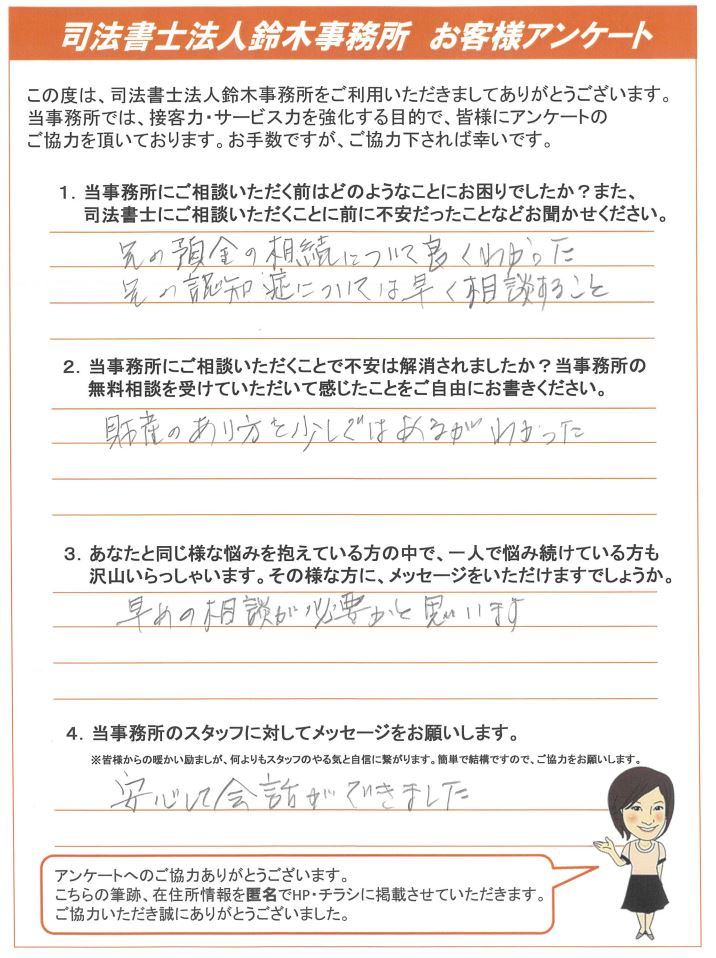 司法書士法人鈴木事務所 お客様アンケート
この度は、司法書士法人鈴木事務所をご利用いただきましてありがとうございます。
当事務所では、接客力・サービス力を強化する目的で、皆様にアンケートの
ご協力を頂いております。お手数ですが、ご協力下されば幸いです。
1．当事務所にご相談いただく前はどのようなことにお困りでしたか？また、
司法書士にご相談いただくことに前に不安だったことなどお聞かせください。
兄の預金の相続について良くわかった
兄の認知症については早く相談すること
2．当事務所にご相談いただくことで不安は解消されましたか？当事務所の
無料相談を受けていただいて感じたことをご自由にお書きください。
財産のあり方を少しではあるがわかった
3．あなたと同じ様な悩みを抱えている方の中で、一人で悩み続けている方も
沢山いらっしゃいます。その様な方に、メッセージをいただけますでしょうか。
早めの相談が必要かと思います
4．当事務所のスタッフに対してメッセージをお願いします。
※皆様からの暖かい励ましが、何よりもスタッフのやる気と自信に繋がります。簡単で結構ですので、ご協力をお願いします。
安心して会話ができました
アンケートへのご協力ありがとうございます。
こちらの筆跡、在住所情報を匿名でHP・チラシに掲載させていただきます。
ご協力いただき誠にありがとうございました。